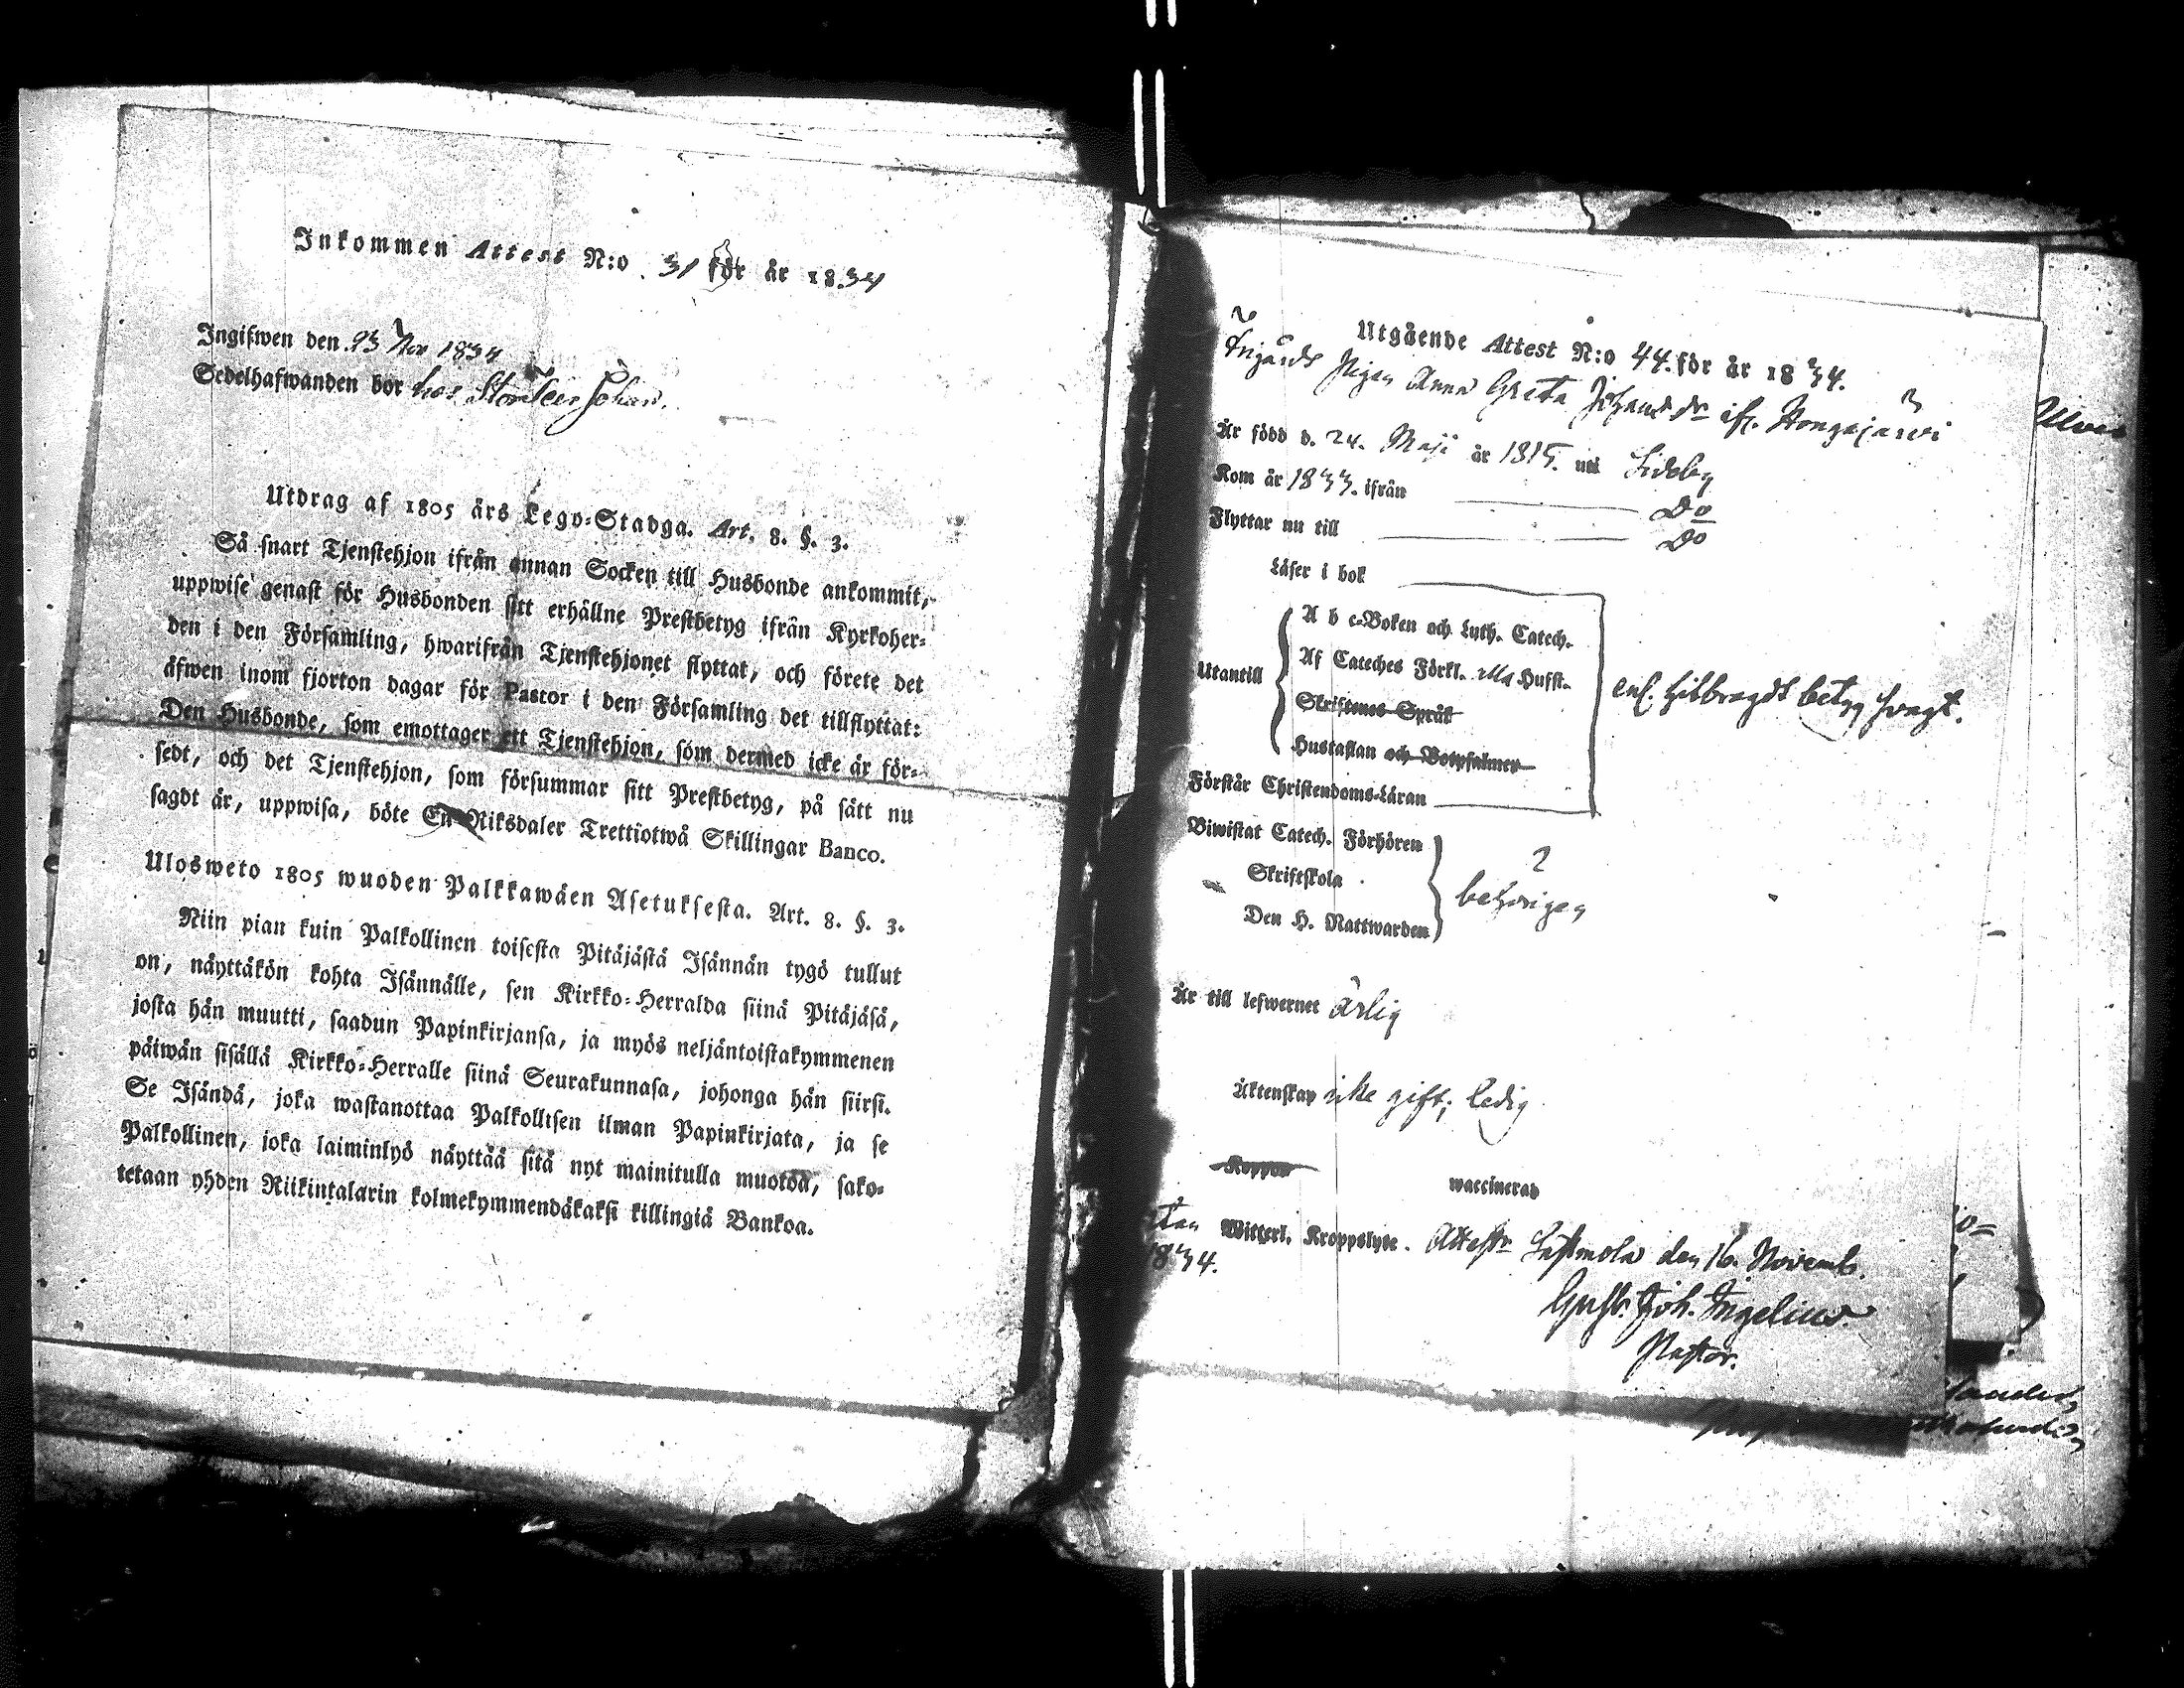 Inkommen Attest N:o 31 för år 1834
Ingifwen den 23 Nov 1834
Sedelhafwanden bor hos Johan.
Utdrag af 1805 års Lego-Stadga. Art. 8. §. 3.
Så snart Tjenstehjon ifrån annan Socken till Husbonde ankommit,
uppwise genast för Husbonden sitt erhållne Prestbetyg ifrån Kyrkoher-
den i den Församling, hwarifrån Tjenstehjonet flyttat, och förete det
äfwen inom fjorton dagar för Pastor i den Församling det tillflyttat:
Den Husbonde, som emottager ett Tjenstehjon, som dermed icke är för-
sedt, och det Tjenstehjon, som försummar sitt Prestbetyg, på sätt nu
sagdt är, uppwisa, böte En Riksdaler Trettiotwå Skillingar Banco.
Ulosweto 1805 wuoden Palkkawäen Asetuksesta. Art. 8. §. 3.
Niin pian kuin Palkollinen toisesta Pitäjästä Isännän tygö tullut
on, näyttäkön kohta Isännälle, sen Kirkko-Herralda siinä Pitäjäsä,
josta hän muutti, saadun Papinkirjansa, ja myös neljäntoistakymmenen
päiwän sisällä Kirkko-Herralle siinä Seurakunnasa, johonga hän siirsi.
Se Isändä, joka wastanottaa Palkollisen ilman Papinkirjata, ja se
Palkollinen, joka laiminlyö näyttää sitä nyt mainitulla muotoa, sako-
tetaan yhden Riikintalarin kolmekymmendäkaksi killingiä Bankoa.
Utgående Attest N:o 44. för år 1834.
Pigan Anna Greta Johansdr ifr. Kongajärvi
Är född d. 24. Maji år 1815. uti Sideby
Kom år 1833. ifrån Do
Flyttar nu till Do
Läser i bok
A b c-Boken och Luth. Catech.
Utantill
Af Cateches Förkl. Hufst.
Skriftenes Språk
Hustaflan och Botpsalmer
enl. betyg svagt.
Förstår Christendoms-Läran
Biwistat Catech. Förhören
Skriftskola
Den H. Nattwarden
behörigen
Är till lefwernet ärlig
Äktenskap icke gift; ledig
Koppor waccinerad
utan Witterl. Kroppslyte. Attestr. Lastmola den 16. Novemb.
1834.
Gust. Joh. Ingelius.
Pastor.